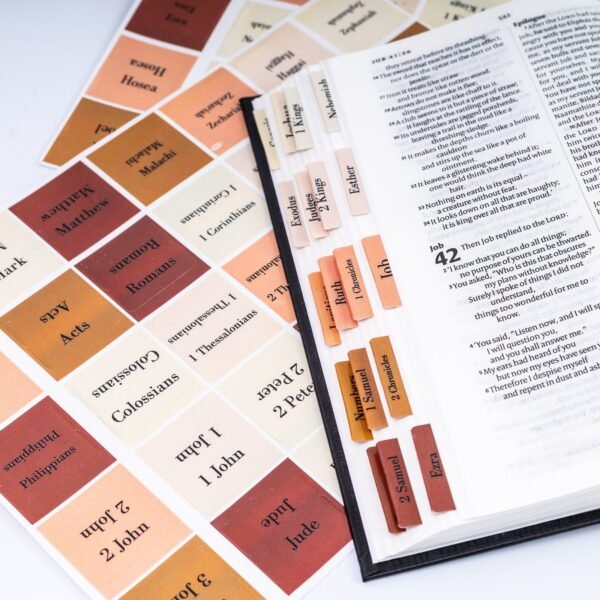 Ezra
Ezra
Hosea
Hosea
Zephaniah
Zephaniah
Haggai
Haggai
Zechariah
Zechariah
Malachi
Malachi
Matthew
Matthew
1 Corinthians
1 Corinthians
Romans
Romans
Mark
Acts
Acts
1 Thessalonians
1 Thessalonians
Colossians
Colossians
2 Peter
2 Pete
1 John
1 John
Philippians
Philippians
2 John
2 John
Jude
Jude
3 John
1 Kings
Nehemiah
Exodus
Judges
2 Kings
Esther
Ruth
1 Chronicles
Job
Numbers
1 Samuel
2 Chronicles
2 Samuel
Ezra
JOB 41:26
582
they retreat before its thrashing.
26 The sword that reaches it has no effect,
nor does the spear or the dart or the
javelin.
27 Iron it treats like straw
and bronze like rotten wood.
28 Arrows do not make it flee;
slingstones are like chaff to it.
29 A club seems to it but a piece of straw;
it laughs at the rattling of the lance.
30 Its undersides are jagged potsherds,
leaving a trail in the mud like a
threshing-sledge.
31 It makes the depths churn like a boiling
cauldron
and stirs up the sea like a pot of
ointment.
32 It leaves a glistening wake behind it;
one would think the deep had white
hair.
33 Nothing on earth is its equal—
a creature without fear.
34 It looks down on all that are haughty;
it is king over all that are proud.”
Job
42 Then Job replied to the LORD:
2 “I know that you can do all things;
no purpose of yours can be thwarted.
3 You asked, ‘Who is this that obscures
my plans without knowledge?’
Surely I spoke of things I did not
understand,
things too wonderful for me to
know.
4 “You said, ‘Listen now, and I will sp
I will question you,
and you shall answer me.’
5 My ears had heard of you
but now my eyes have seen y
6 Therefore I despise myself
and repent in dust and ash
Epilogue
7 After the LORD h